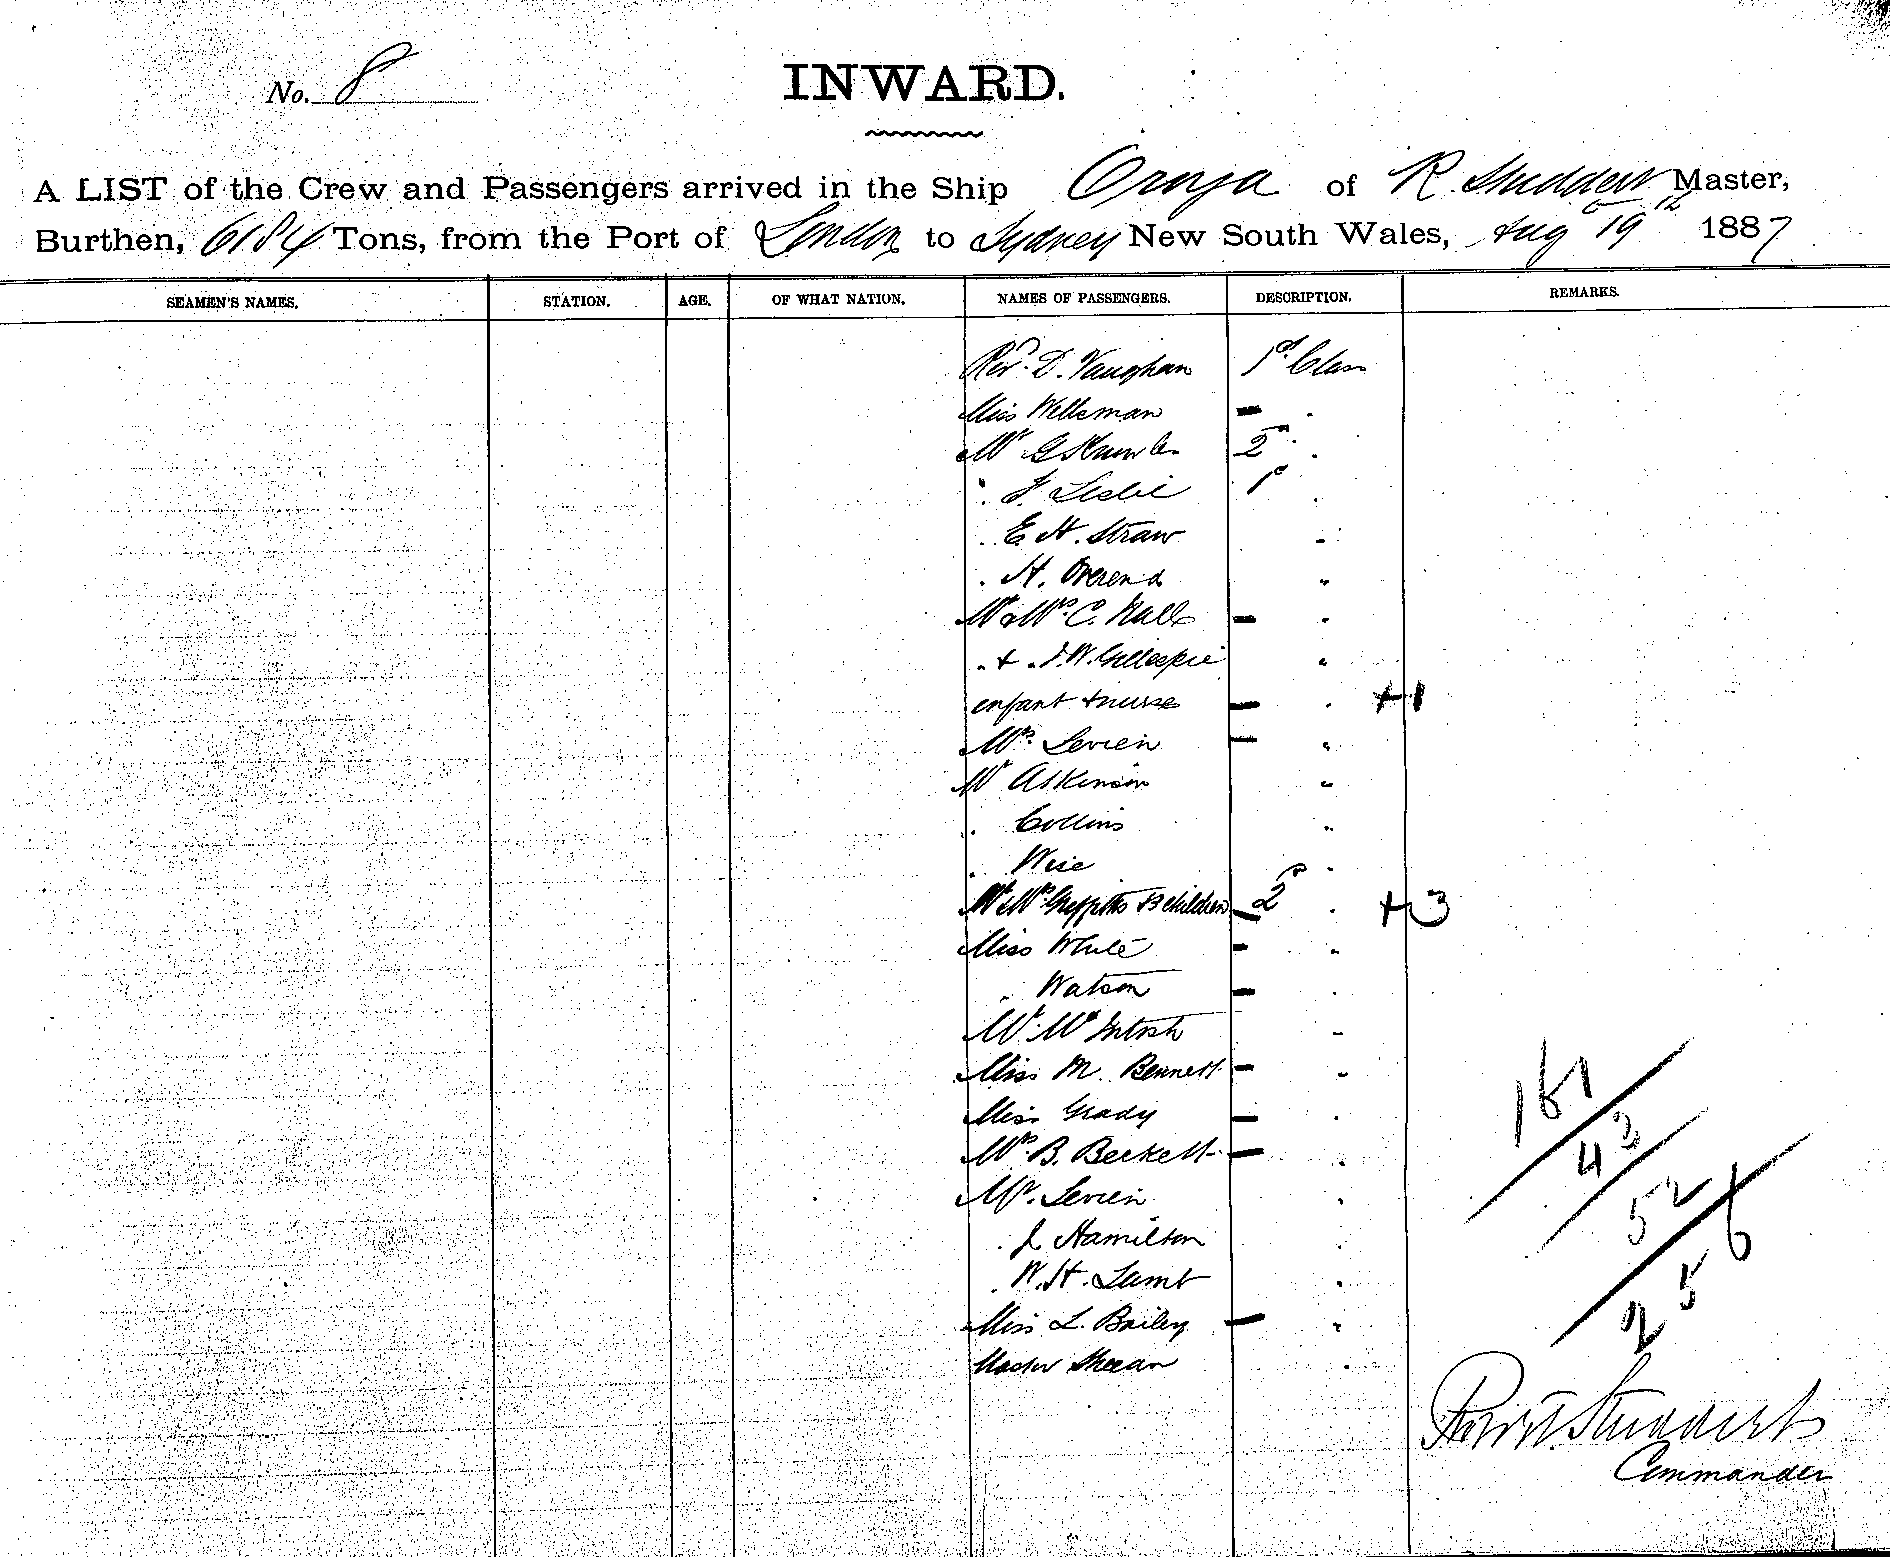 No. 8
INWARD.
A LIST of the Crew and Passengers arrived in the Ship Oroya of R. Studdert Master,
Burthen, 6184 Tons, from the Port of London to Sydney New South Wales, Aug 19th 1887
SEAMEN'S NAMES. STATION. AGE. OF WHAT NATION. NAMES OF PASSENGERS. DESCRIPTION. REMARKS.
Revd. D. Vaughan 1st Class
Miss Welleman — .
Mr G 2nd .
" F. Leslie 1st .
. E H. Straw "
. H. Overend "
Mr & Mrs C. Hall — "
" + " J. W. Gillespie "
enfant + nurse — . +1
Mrs. Levien — "
Mr Atkinson "
. Collins "
. Wise .
Mr & Mrs Griffiths + 3 children 2nd . +3
Miss White — "
" Watson — .
Mr. McIntosh "
Miss M. Bennett — "
Miss Grady — .
Mrs. B. Beckett — .
Mr. Levien .
. J Hamilton .
. W. H. Lamb .
Miss L. Bailey — "
Master Sheean .
161
43
52
6
25
Robt. Studdert
Commander